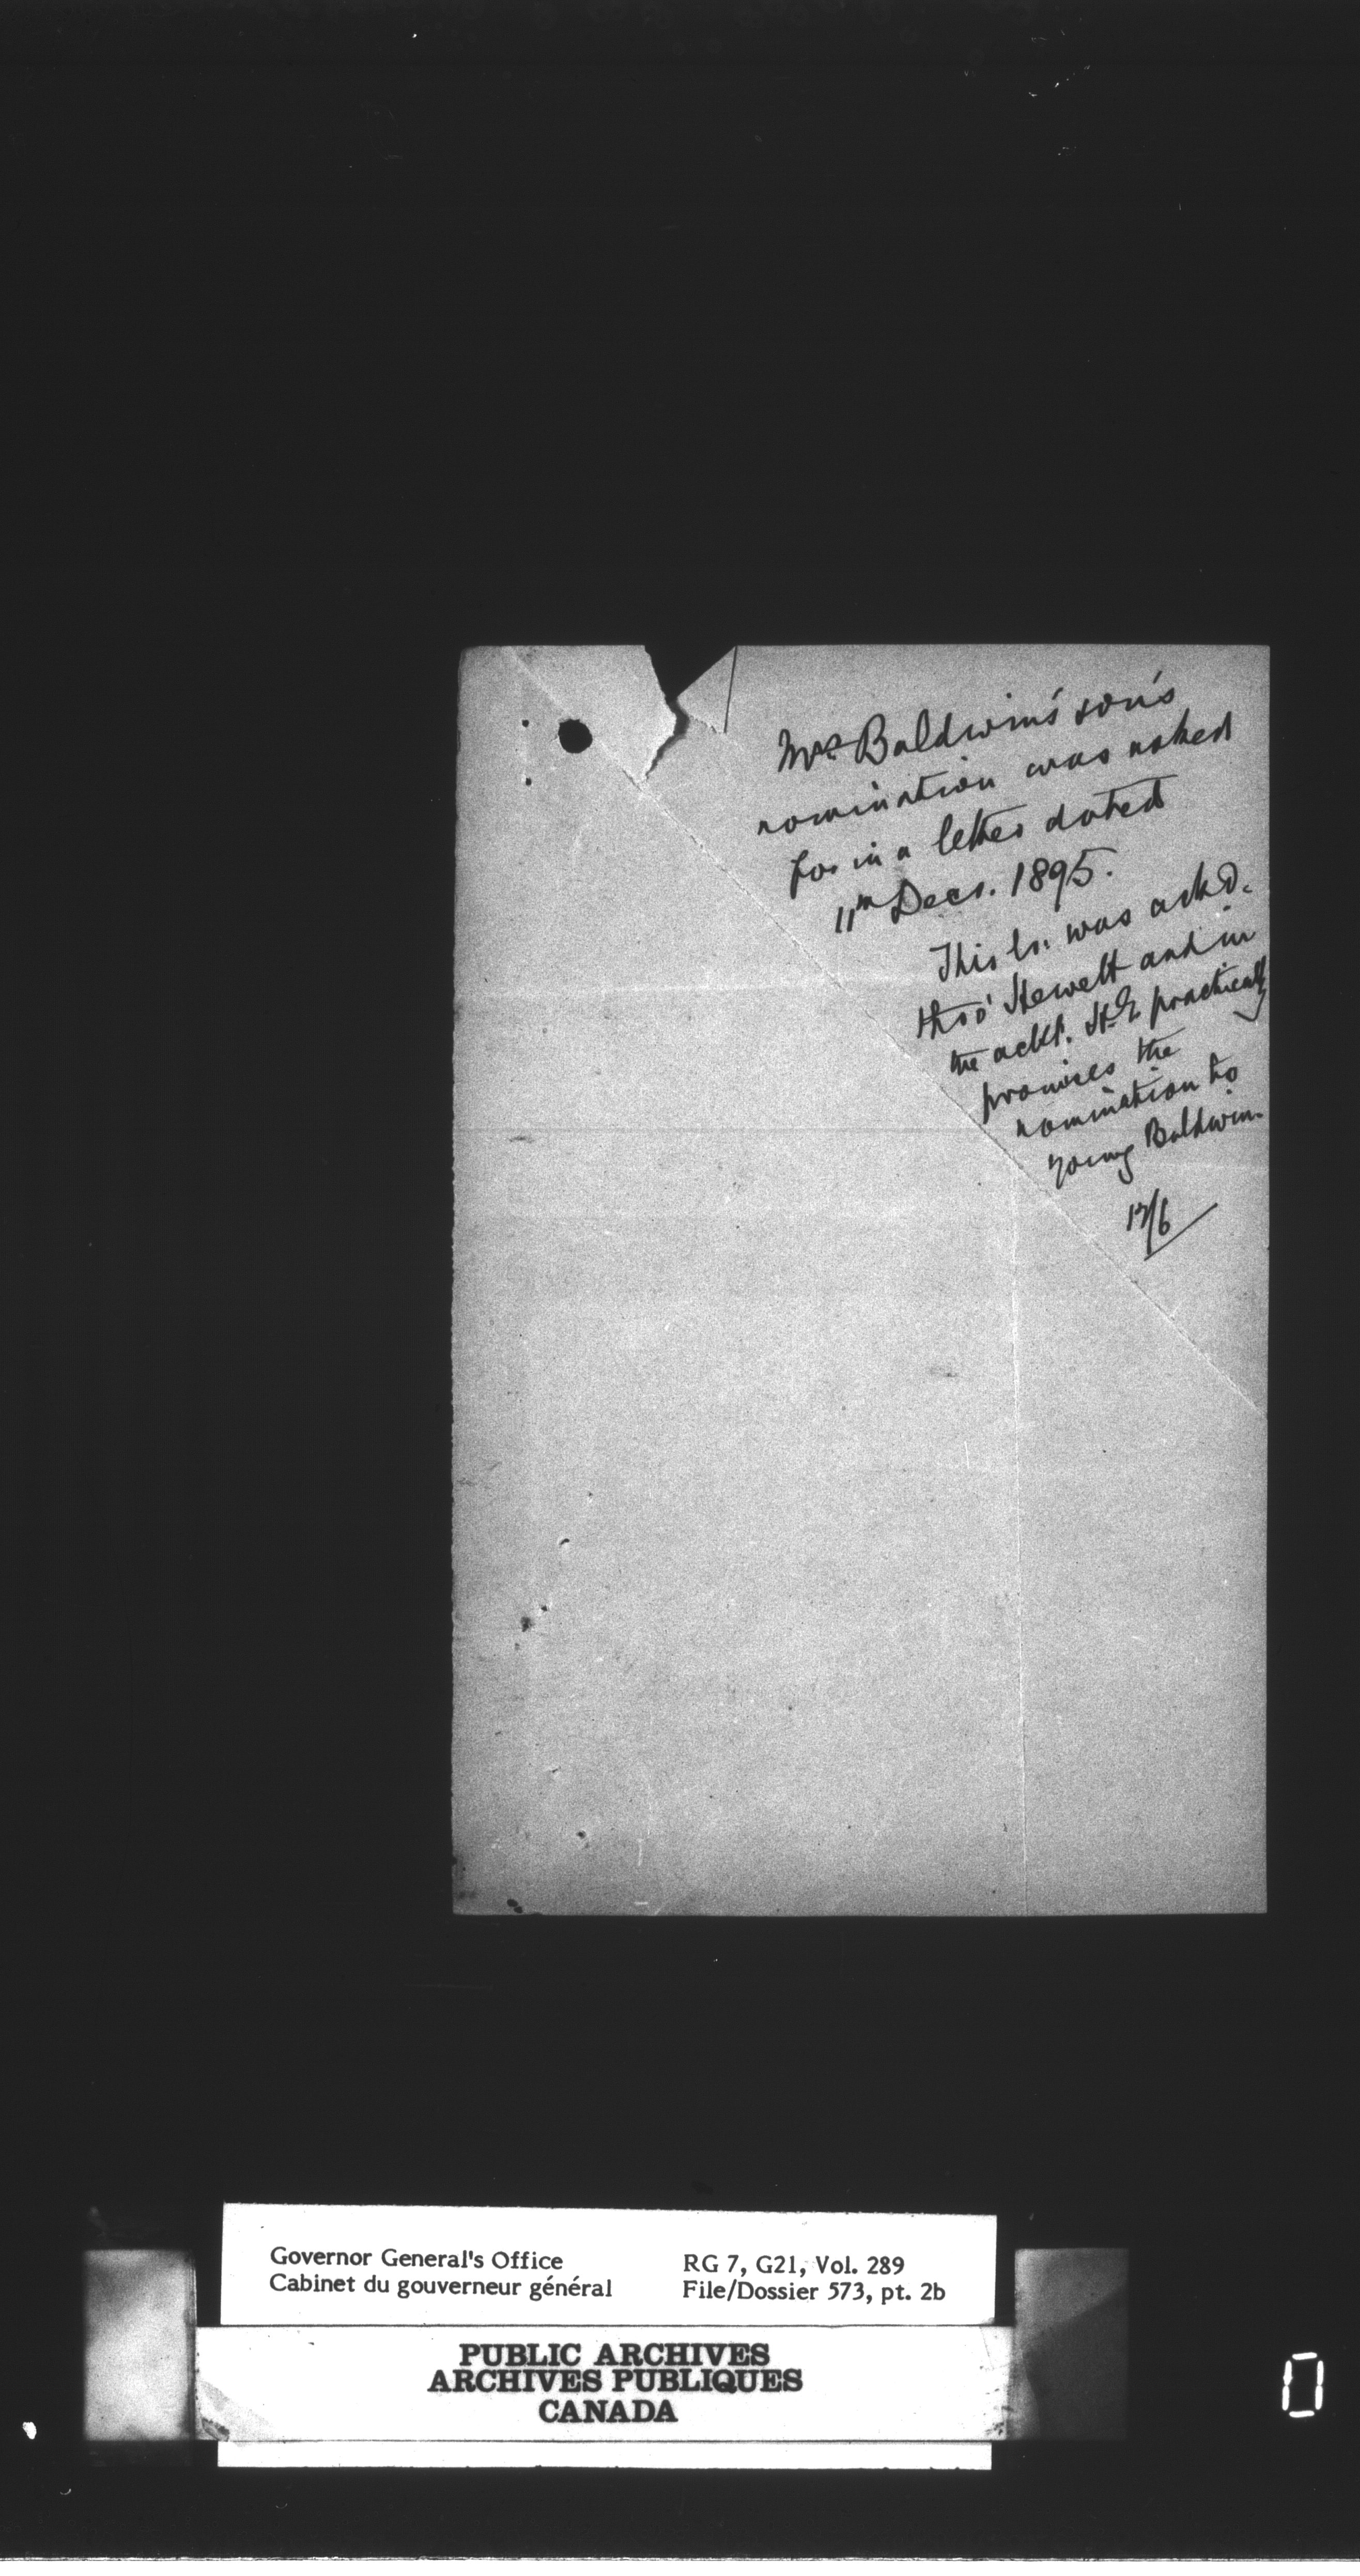 Mrs. Baldwin's son's
nomination was asked
for in a letter dated
11th Decr. 1895.
This lr. was ackd.
thro' Hewett and in
the ackt. H.E. practically
promises the
nomination to
young Baldwin.
17/6
Governor General's Office
Cabinet du gouverneur général
RG 7, G21, Vol. 289
File/Dossier 573, pt. 2b
PUBLIC ARCHIVES
ARCHIVES PUBLIQUES
CANADA
0